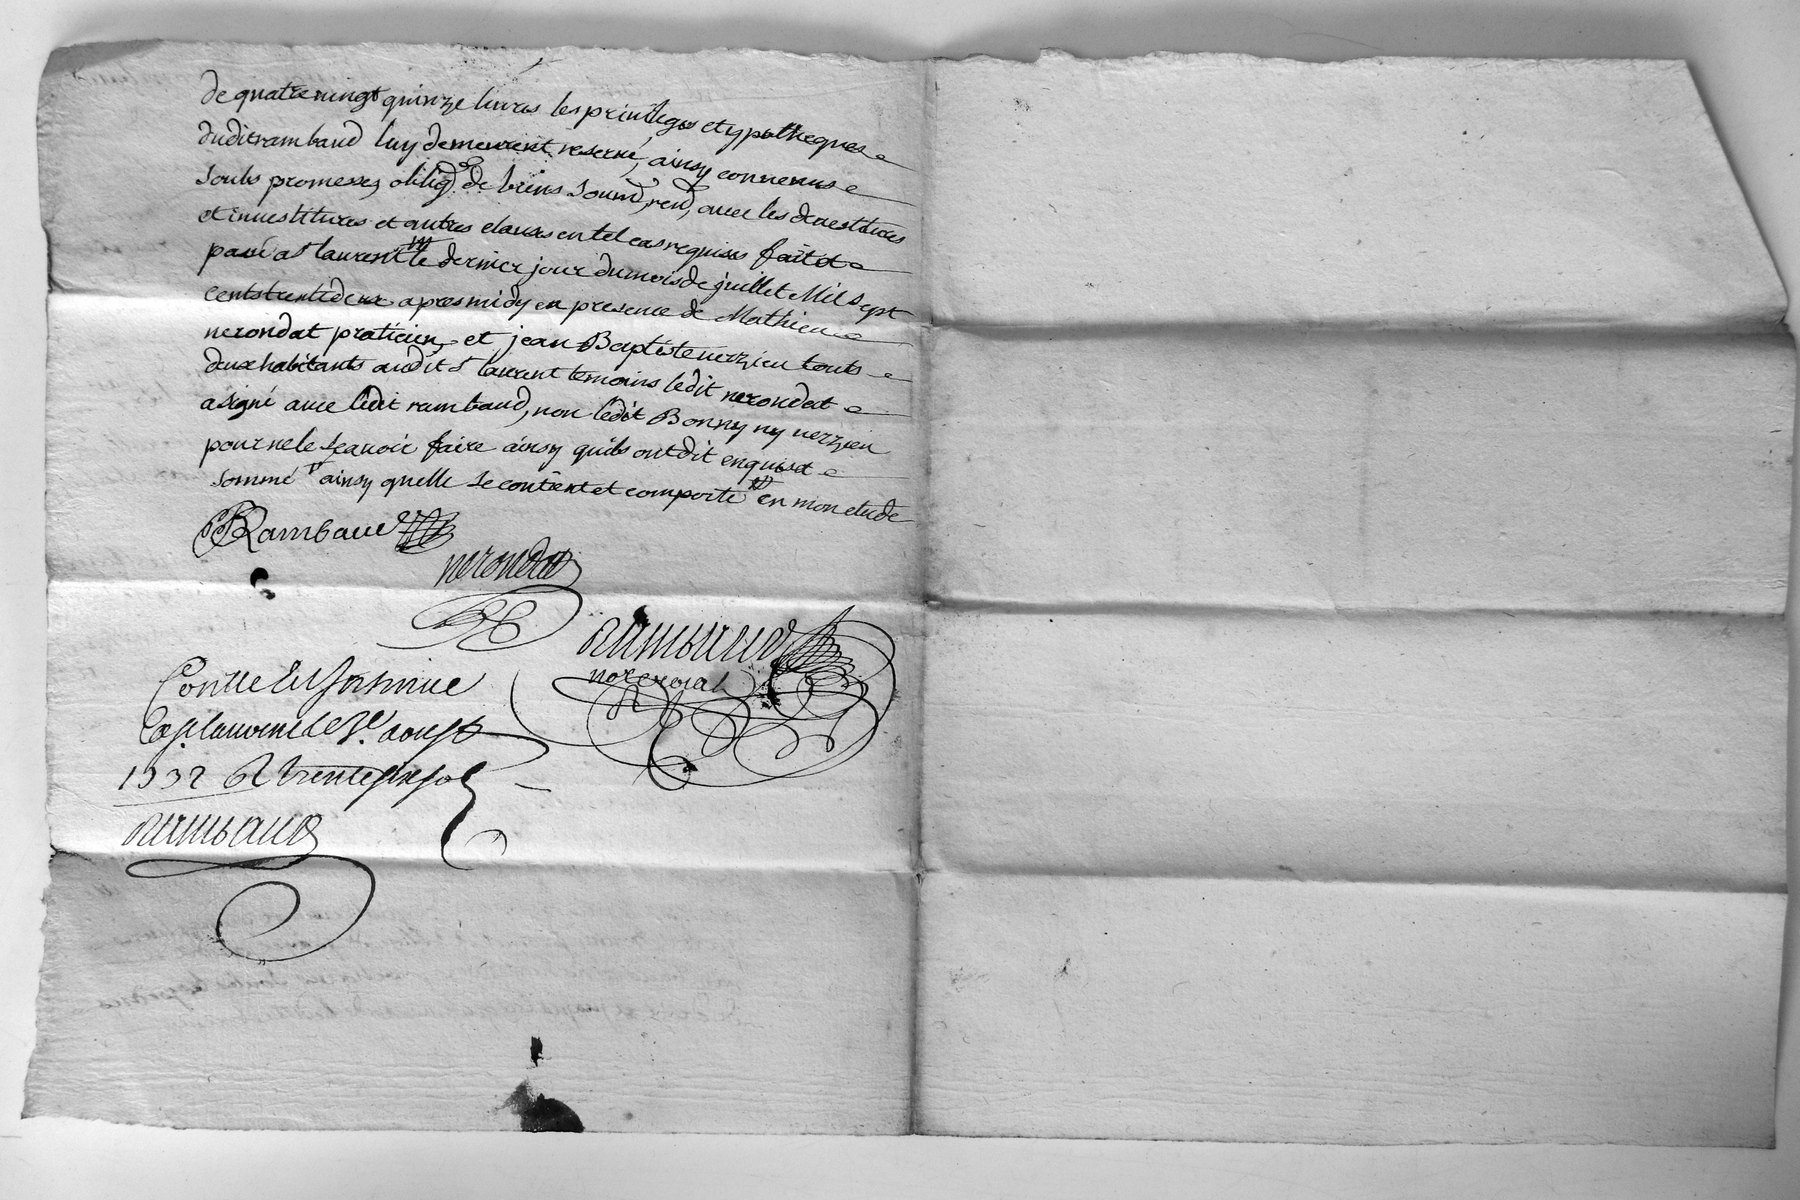 de quatre vingt quinze livres les privileges et ypotheques
dudit rambaud luy demeurent reservé, ainsy convenus
soubs promesses, oblig.on de biens soum, ren, avec les devestitures
et investitures et autres clauses en tel cas requises fait et
passé a st laurent le dernier jour du mois de juillet Mil sept
cents trente deux apres midy en presence de Mathieu
nerondat praticien, et jean Baptiste verzieu touts
deux habitants audit st laurent temoins ledit nerondat
a signé avec ledit rambaud, non ledit Bonny ny verzieu
pour ne le sçavoir faire ainsy quils ont dit enquis et
sommé ainsy quelle se contient et comporte en mon etude
Rambaud
nerondat
rambaud
not royal
Conlle et
a st laurent le aoust
1732 R trente six sols
rambaud